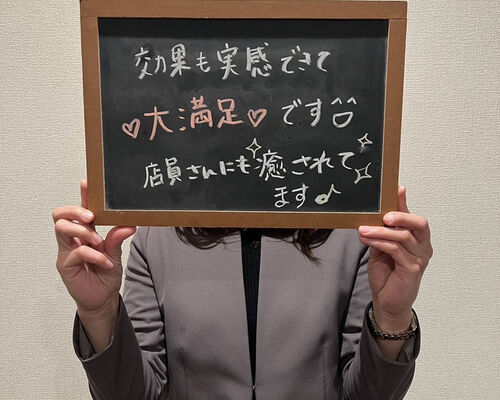 効果も実感できて
♡大満足♡です^^
店員さんにも癒されて
ます♪